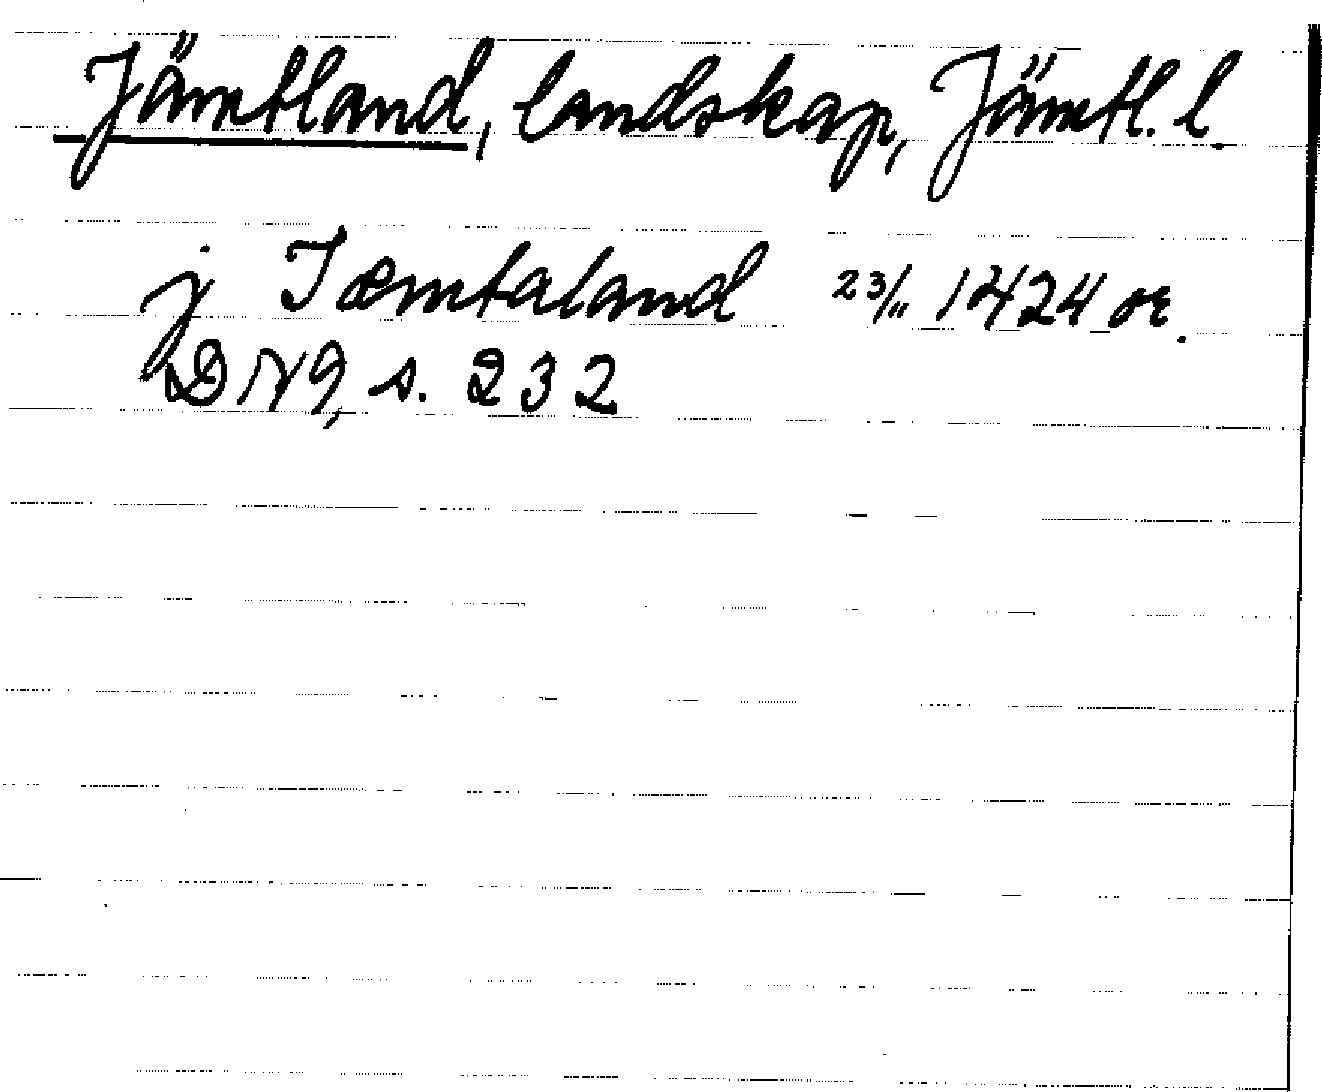 Jämtland, landskap, Jämtl. l.
j Jæmtaland 23/11 1424 or.
DN9, s. 232